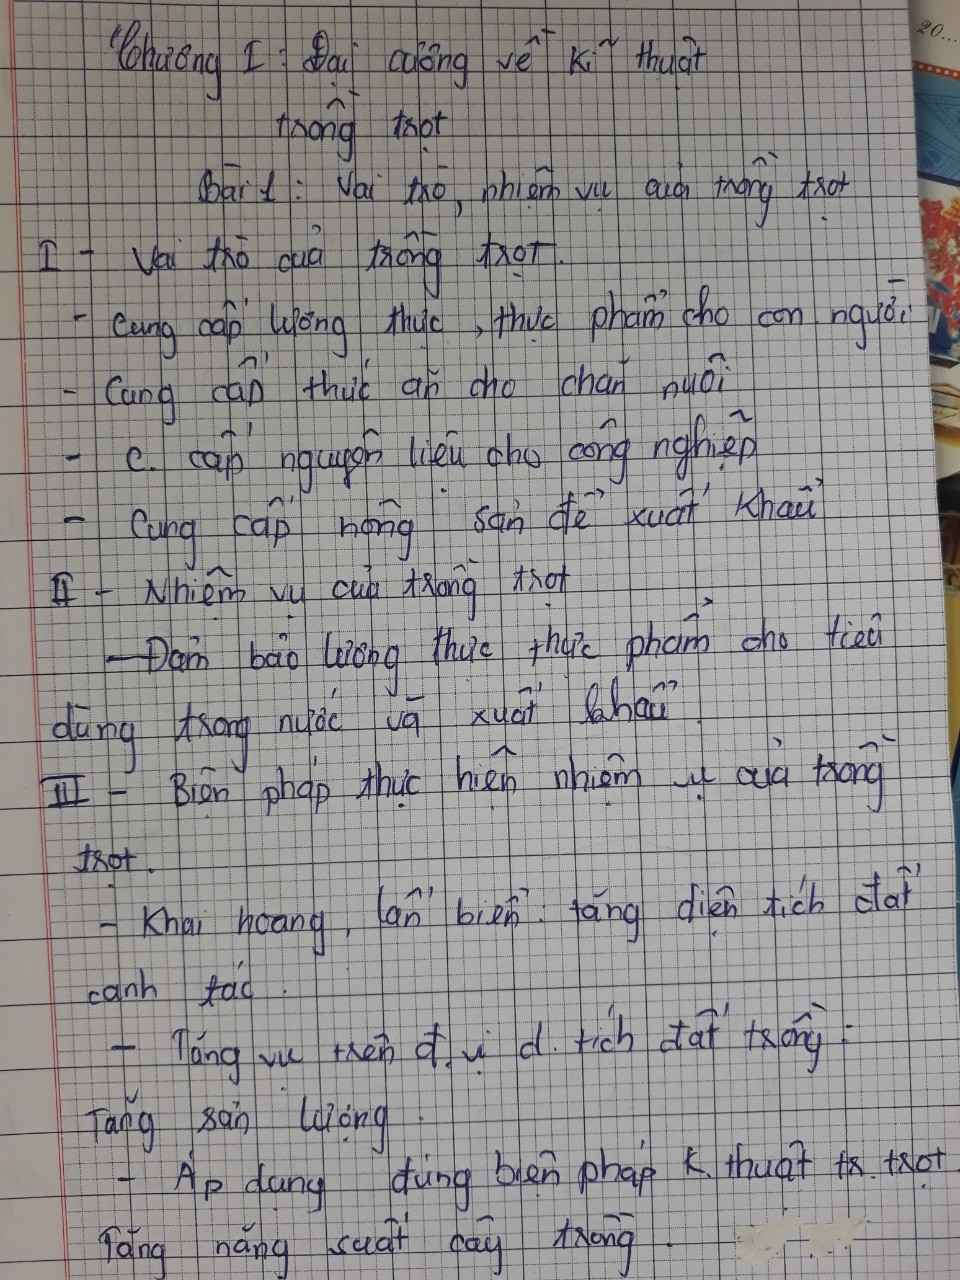 Chương I : Đại cương về kĩ thuật
trồng trọt
Bài 1 : Vai trò, nhiệm vụ của trồng trọt
I - Vai trò của trồng trọt.
- Cung cấp lương thực, thực phẩm cho con người
- Cung cấp thức ăn cho chăn nuôi
- C. cấp nguyên liệu cho công nghiệp
- Cung cấp nông sản để xuất khẩu
II - Nhiệm vụ của trồng trọt
- Đảm bảo lương thực thực phẩm cho tiêu
dùng trong nước và xuất khẩu
III - Biện pháp thực hiện nhiệm vụ của trồng
trọt.
- Khai hoang, lấn biển : tăng diện tích đất
canh tác.
- Tăng vụ trên đ.vị d. tích đất trồng :
Tăng sản lượng.
- Áp dụng đúng biện pháp k. thuật tr. trọt
Tăng năng suất cây trồng.
20...